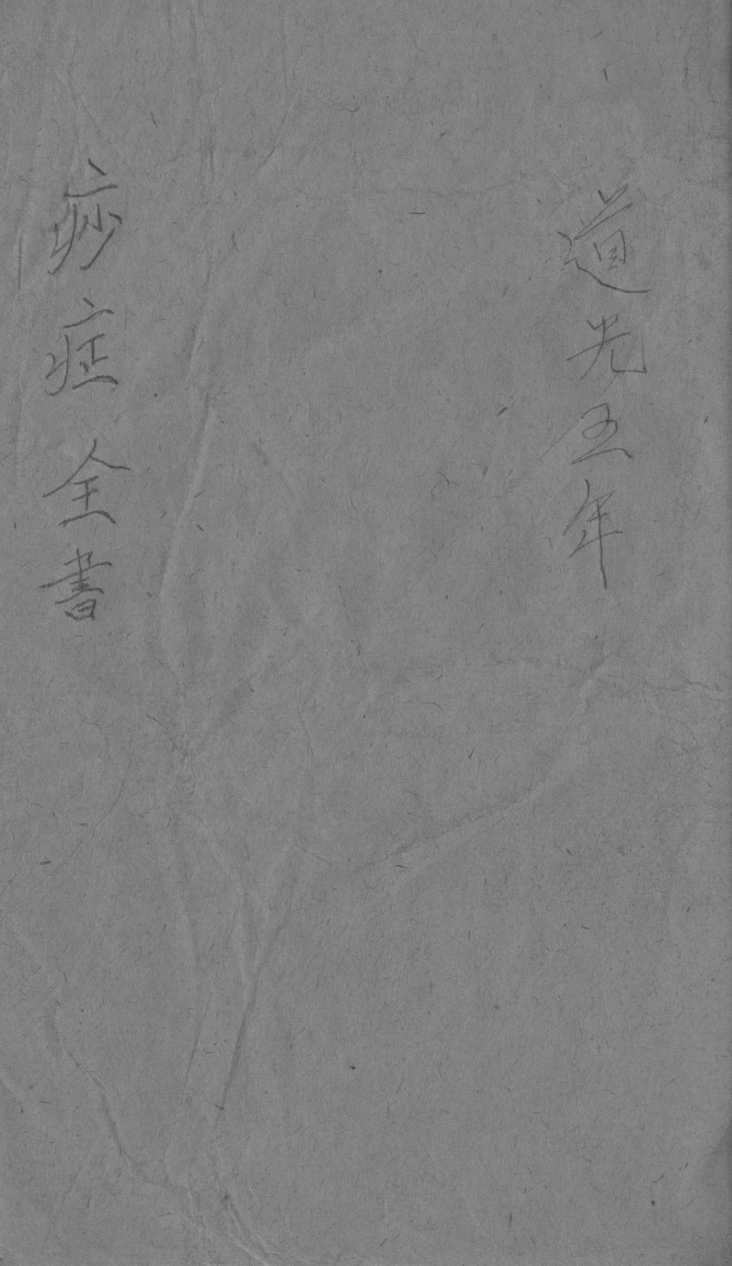 道光五年
痧症全書